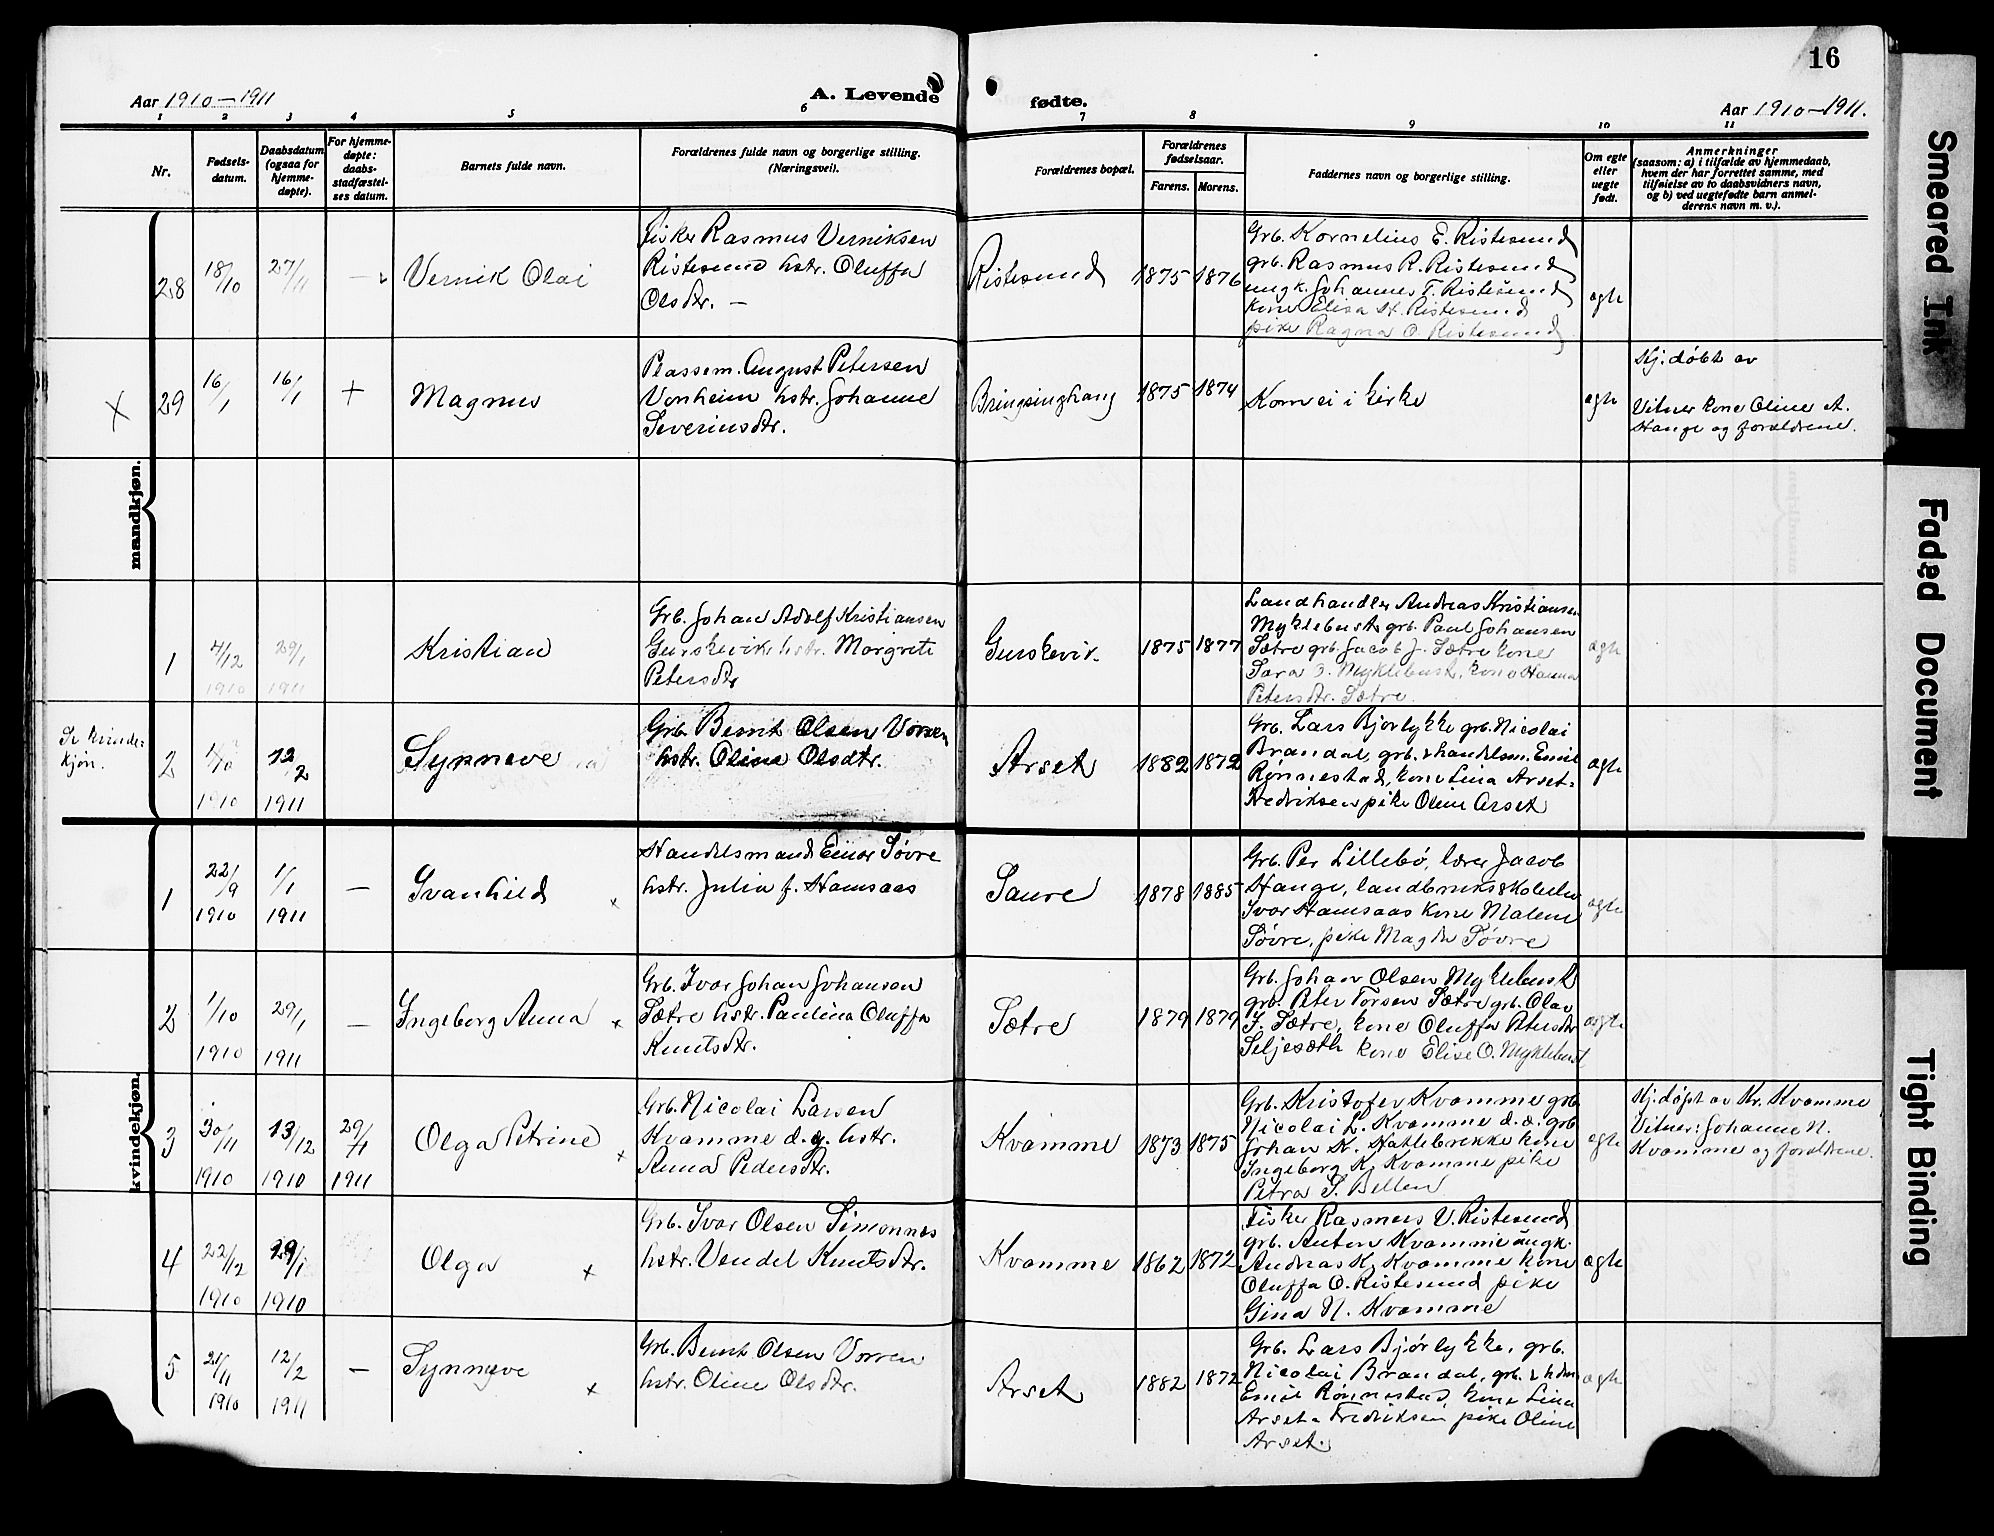 16
Aar 1910–1911
A. Levende
fødte.
Aar 1910–1911.
1 2 3 4 5 6 7 8 9 10 11
Nr.
Fødsels-
datum.
Daabsdatum
(ogsaa for
hjemme-
døpte).
For hjemme-
døpte:
daabs-
stadfæstel-
ses datum.
Barnets fulde navn.
Forældrenes fulde navn og borgerlige stilling.
(Næringsvei).
Forældrenes bopæl.
Forældrenes
fødselsaar.
Farens. Morens.
Faddernes navn og borgerlige stilling.
Om egte
eller
uegte
født.
Anmerkninger
(saasom: a) i tilfælde av hjemmedaab,
hvem der har forrettet samme, med
tilføielse av to daabsvidners navn,
og b) ved uegtefødte barn anmel-
derens navn m. v.).
mandkjøn.
28
18/10
27/11
—
Vernik Olai
Fisker Rasmus Verniksen
Ristesund hstr. Oluffa
Olsdtr. —
Ristesund
1875 1876
Grb. Kornelius E. Ristesund
grb. Rasmus R. Ristesund
ungk. Johannes T. Ristesund
kone Elisa H. Ristesund
pike Ragna O. Ristesund
ægte
X
29
16/1
16/1
+
Magnus
Plassem. August Petersen
Vonheim hstr. Johanne
Severinsdtr.
Bringsinghaug
1875 1874
Kom ei i kirke
ægte
Hj. døbt av
Vitner kone Oline A.
Hauge og forældrene.
1
4/12
1910
29/1
1911
Kristian
Grb. Johan Adolf Kristiansen
Gurskevik hstr. Margrete
Petersdtr
Gurskevik.
1875 1877
Landhandler Andreas Kristiansen
Myklebust, grb. Paul Johansen
Sætre grb. Jacob J. Sætre kone
Sara J. Myklebust, kone Hanna
Petersdtr. Sætre.
ægte
Se kvinde-
kjøn.
2
1910
12/2
1911
Synneve
Grb. Bernt Olsen Vorren
hstr. Oline Olsdtr.
Arset
1882 1872
Grb. Lars Bjørlykke grb. Nicolai
Brandal, grb. & handelsm. Emil
Rønnestad, kone Lina Arset-
Fredriksen pike Oline Arset
ægte
kvindekjøn.
1
22/9
1910
1/1
1911
—
Svanhild
x
Handelsmand Einar Søvre
hstr. Julia J. Hamsaas
Saure
1878 1885
Grb. Per Lillebø, lærer Jacob
Hauge, landbruksskole
Ivar Hamsaas kone Malene
Søvre, pike Magda Søvre
ægte
2
1/10
1910
29/1
1911
—
Ingeborg Anna x
Grb. Ivar Johan Johansen
Sætre hstr. Paulina Oluffa
Knutsdtr.
Sætre
1879 1879
Grb. Johan Olsen Myklebust
grb. Peter Torsen Sætre grb. Olav
J. Sætre, kone Oluffa Petersdtr
Seljesæth kone Elise O. Myklebust
ægte
3
30/11
1910
13/12
1910
29/1
1911
Olga Petrine x
Grb. Nicolai Larsen
Kvamme d. y. hstr.
Anna Pedersdtr.
Kvamme
1873 1875
Grb. Kristofer Kvamme grb.
Nicolai L. Kvamme d. æ. grb
Johan K. Hatlebrekke kone
Ingeborg K. Kvamme pike
Petra S. Belten
ægte
Hj. døpt av Kr. Kvamme
Vitner: Johanne N.
Kvamme og forældrene.
4
22/12
1910
29/1
1910
Olga x
Grb. Ivar Olsen Simonnes
hstr. Vendel Knutsdtr.
Kvamme
1862 1872
Fisker Rasmus V. Ristesund
grb. Anton Kvamme ungk.
Andreas K. Kvamme kone
Oluffa O. Ristesund pike
Gina N. Kvamme
ægte
5
21/11
1910
12/2
1911
—
Synneve x
Grb. Bernt Olsen Vorren
hstr. Oline Olsdtr.
Arset
1882 1872
Grb. Lars Bjørlykke, grb.
Nicolai Brandal, grb. & hdm
Emil Rønnestad, kone Lina
Arset-Fredriksen pike Oline
Arset.
ægte
Smeared Ink
Faded Document
Tight Binding